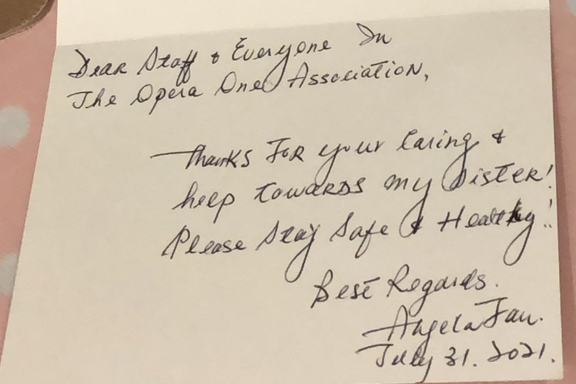 Dear Staff & Everyone In
The Opera One Association,
Thanks For your Caring &
help towards my Sister!
Please Stay Safe & Healthy!
Best Regards.
Angela
July 31. 2021.